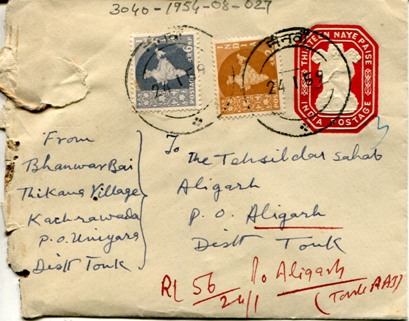 3040-1954-08-027
THIRTEEN NAYE PAISE
INDIA POSTAGE
24 1 59
24 1 59
From
Bhanwar Bai
Thikana Village
Kachrawada
P.O. Uniyara
Distt Tonk
To
The Tehsildar Sahab
Aligarh
P. O. Aligarh
Distt Tonk
RL 56
24/1
Po Aligarh
(Tonk RAJ)